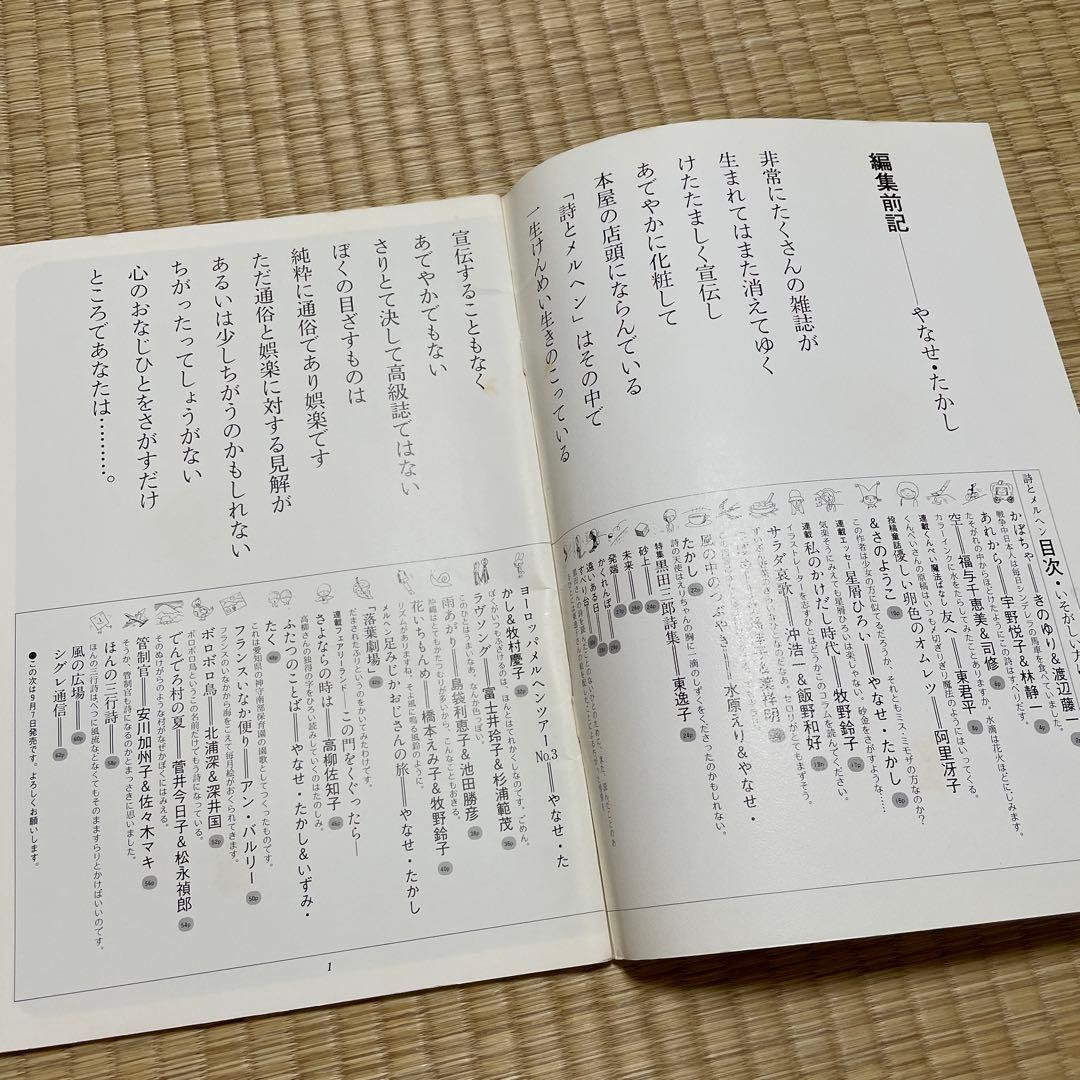 編集前記――やなせ・たかし
非常にたくさんの雑誌が
生まれてはまた消えてゆく
けたたましく宣伝し
あでやかに化粧して
本屋の店頭にならんでいる
「詩とメルヘン」はその中で
一生けんめい生きのこっている
宣伝することもなく
あでやかでもない
さりとて決して高級誌ではない
ぼくの目ざすものは
純粋に通俗であり娯楽です
ただ通俗と娯楽に対する見解が
あるいは少しちがうのかもしれない
ちがったってしょうがない
心のおなじひとをさがすだけ
ところであなたは………。
詩とメルヘン 目次・いそがしい
かぼちゃ――きのゆり&渡辺藤一
戦争中日本人は毎日シンデレラの馬車を食べていました。
あれから――宇野悦子&林静一 4p
たそがれの中からほどけたようにこの詩はすべりだす。
空――福与千恵美&司修 6p
カラーインクに水をたらしてみたことありますか、水滴は花火ほどにしみます。
連載くんぺい魔法ばなし 友へ――東君平 8p
くんぺいさんの原稿はいつも〆切ぎりぎり魔法のようにはいってくる。
投稿童話優しい卵色のオムレツ――阿里冴子
&さのようこ 10p
この作者は少女の方に似てるだろうか、それともミス・ミモザの方なのか?
連載エッセー星屑ひろい――やなせ・たかし 16p
気楽そうにみえても星屑ひろいは楽しくない。砂金をさがすような……
連載 私のかけだし時代――牧野鈴子 17p
イラストレーターを志すひとはどうかこのコラムを読んでください。
サラダ哀歌――沖浩一&飯野和好 18p
風の中のつぶやき――水原えり&やなせ・
たかし 22p
詩の天使はえりちゃんの胸に一滴のしずくをくださったのかもしれない。
特集 黒田三郎詩集――東逸子 24p
砂上 24p
未来 26p
発端
かくれんぼ
遠いある日
すべり台
ヨーロッパメルヘンツアー No.3――やなせ・た
かし&牧村慶子 32p
ぼくがいつもふざけるのは、ほんとはてれかくしなのです。ごめん。
ラヴソング――富士井玲子&杉浦範茂 36p
このひとはうまいなあ、なんか色っぽい。
雨あがり――島袋利恵子&池田勝彦 38p
沖縄はとてもかたつむりが多いから、こんなこともおきる。
花いちもんめ――橋本えみ子&牧野鈴子 40p
リズムがありますね、そして風に鳴る風鈴のように。
メルヘン足みじかおじさんの旅――やなせ・たかし
「落葉劇場」 42p
だまされたふりというのをかいてみたわけです。
連載フェアリーランド――この門をくぐったら――
さよならの時は――高柳佐知子 46p
高柳さんの独得の字をひろい読みしていくのはたのしみ。
ふたつのことば――やなせ・たかし&いずみ・
たく 48p
これは愛知県の神守南部保育園の園歌としてつくったものです。
フランスいなか便り――アン・バルリー 50p
フランスのいなかから海をこえて毎月絵がおくられてきます。
ボロボロ鳥――北浦深&深井国 52p
ボロボロ鳥というこの名前だけでもう詩になっている。
でんでろ村の夏――菅井今日子&松永禎郎 54p
そのぬけがらのような村がなぜかぼくにはみえる。
管制官――安川加州子&佐々木マキ 56p
そうか、管制官も詩になるのかとまっさきに思いました。
ほんの三行詩 58p
ほんの三行詩はべつに風流などなくてもそのまますらりとかけばいいのです。
風の広場 60p
シグレ通信 62p
●この次は9月7日発売です。よろしくお願いします。
1